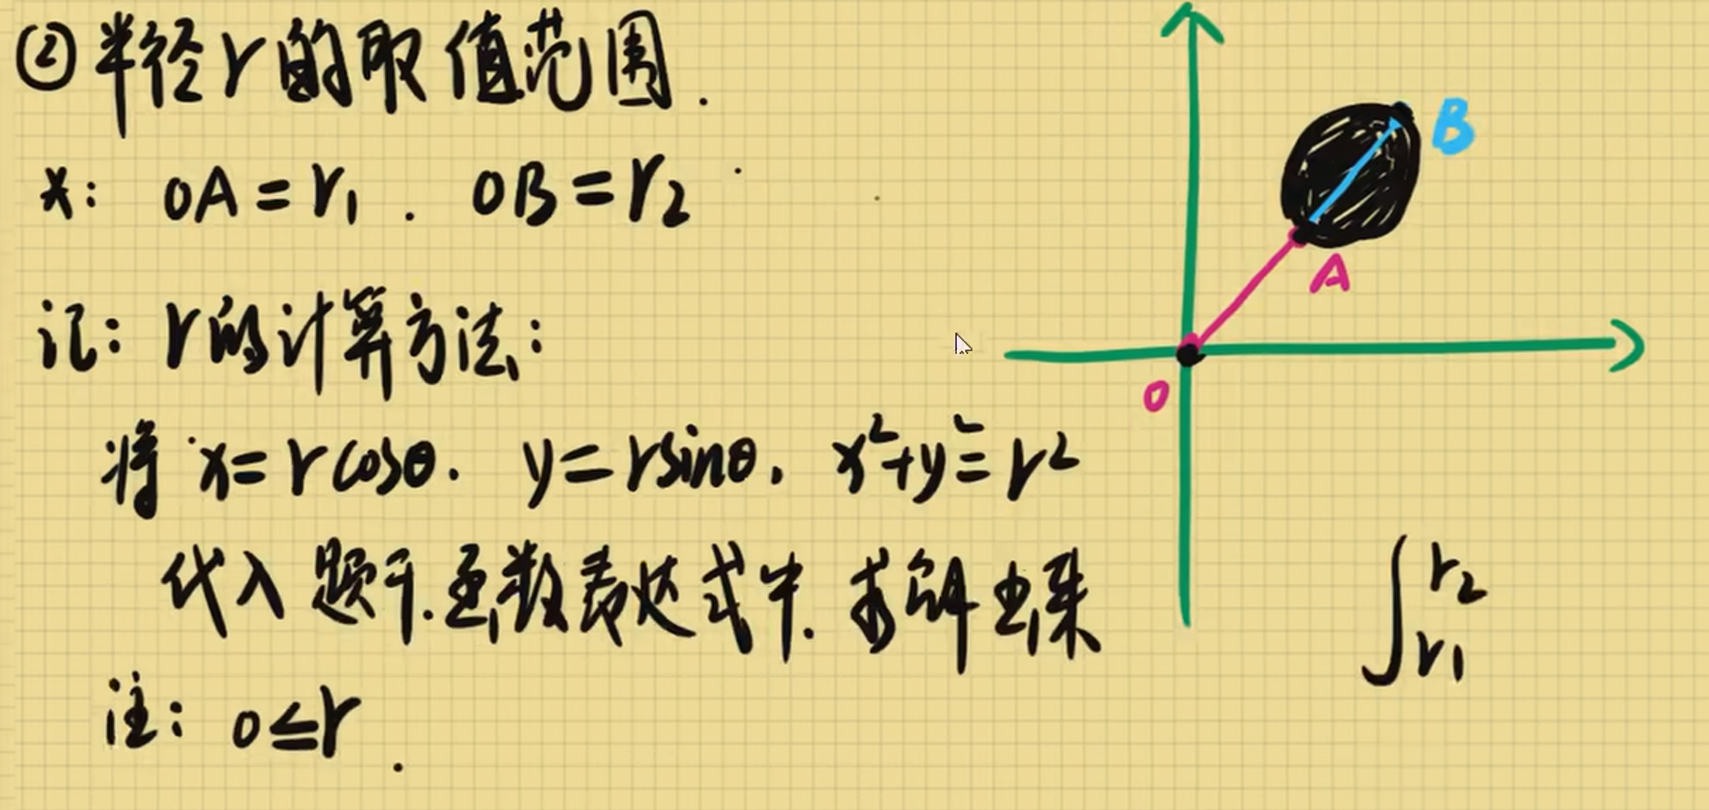 ②半径r的取值范围.
求: OA=r₁. OB=r₂
记: r的计算方法:
将x=rcosθ. y=rsinθ. x²+y²=r²
代入题干.函数表达式中.求解出来
注: 0≤r.
B
A
O
∫r₂
r₁